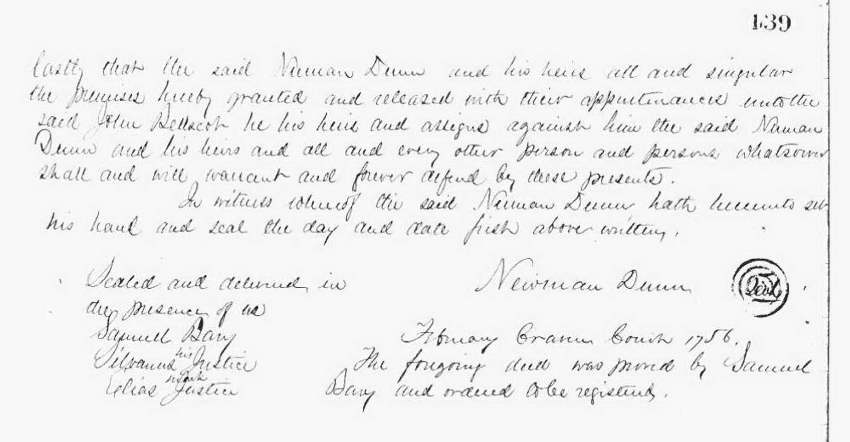 139
lastly that the said Neuman Dunn and his heirs all and singular
the premises hereby granted and released with their appurtenances unto the
said John Bellscot he his heirs and assigns against him the said Numan
Dunn and his heirs and all and every other person and persons whatsoever
shall and will warrant and forever defend by these presents.
In witness whereof the said Neuman Dunn hath hereunto set
his hand and seal the day and date first above written.
Sealed and delivered in
the presence of us
Samuel Bary
Silvanus his Justice
Elias mark Justice
Newman Dunn
Seal
February Craven Court 1756.
The foregoing deed was proved by Samuel
Bary and ordered to be registered.